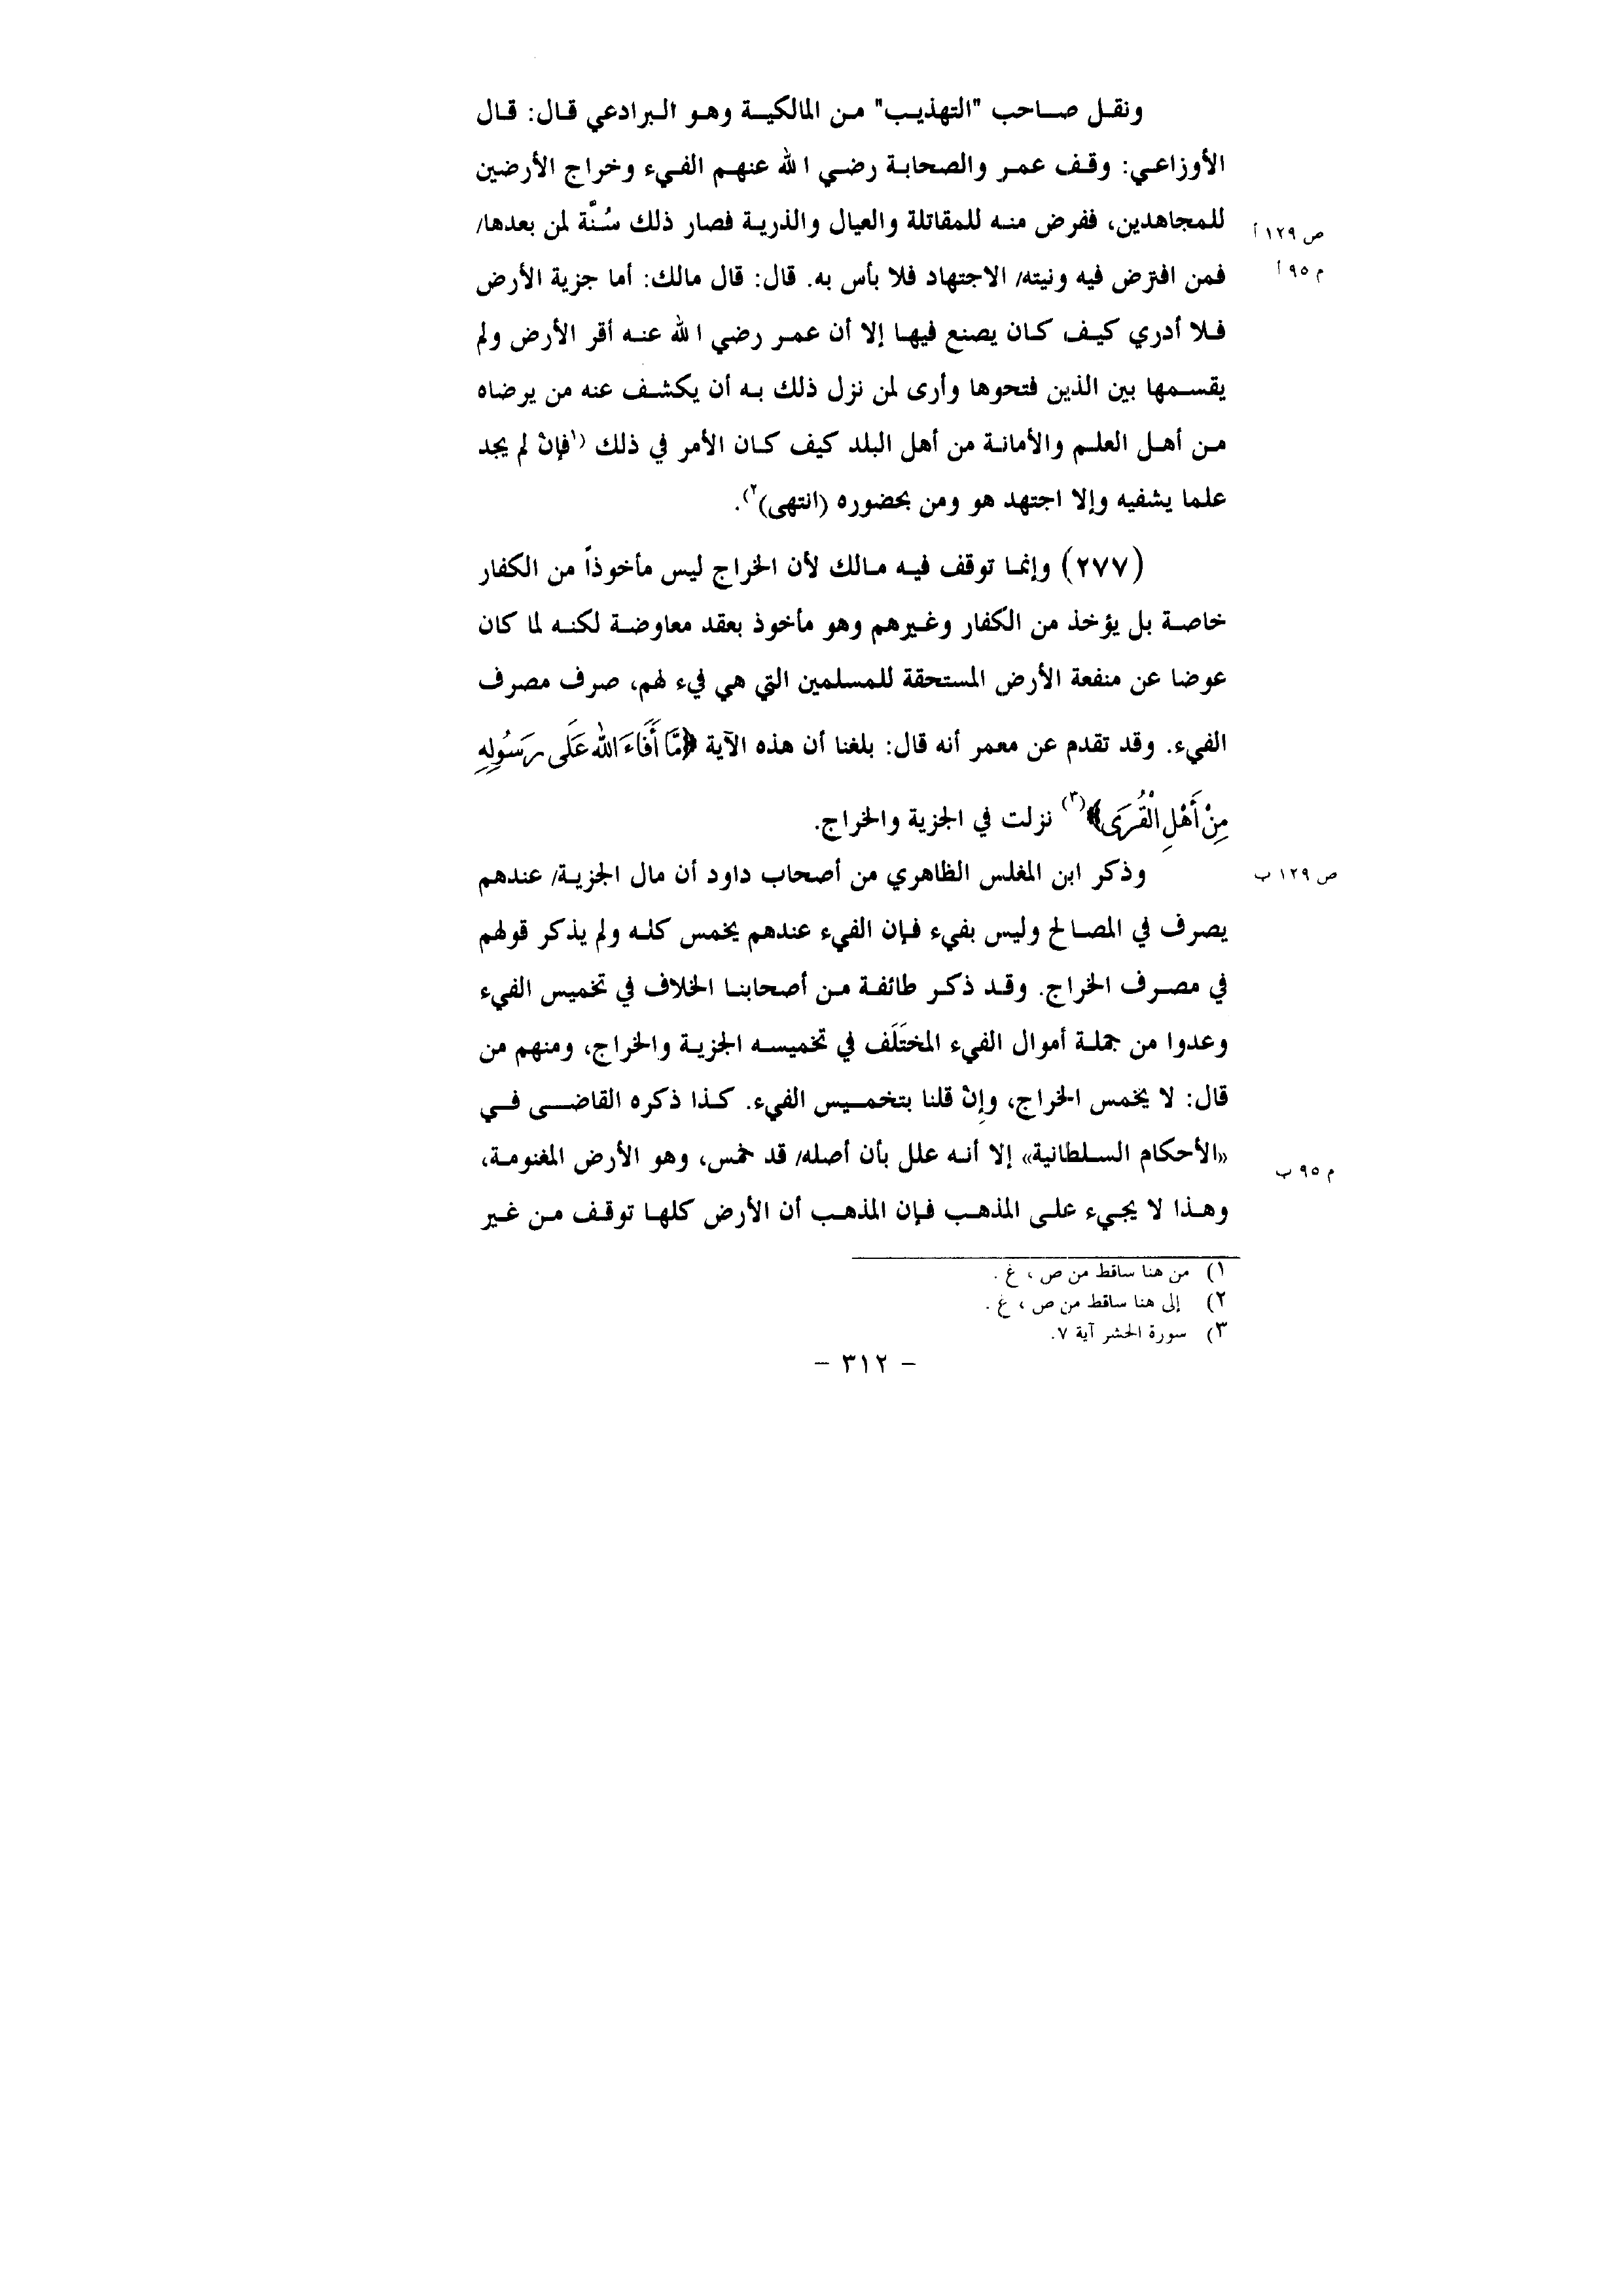 ونقل صاحب "التهذيب" من المالكية وهو البرادعي قال: قال
الأوزاعي: وقف عمر والصحابة رضي الله عنهم الفيء وخراج الأرضين
للمجاهدين، ففرض منه للمقاتلة والعيال والذرية فصار ذلك سُنَّة لمن بعدها/
ص ١٢٩ أ
فمن افترض فيه ونيته/ الاجتهاد فلا بأس به. قال: قال مالك: أما جزية الأرض
م ٩٥ أ
فلا أدري كيف كان يصنع فيها إلا أن عمر رضي الله عنه أقر الأرض ولم
يقسمها بين الذين فتحوها وأرى لمن نزل ذلك به أن يكشف عنه من يرضاه
من أهل العلم والأمانة من أهل البلد كيف كان الأمر في ذلك (١فإنْ لم يجد
علما يشفيه وإلا اجتهد هو ومن بحضوره (انتهى)٢).
(٢٧٧) وإنما توقف فيه مالك لأن الخراج ليس مأخوذاً من الكفار
خاصة بل يؤخذ من الكفار وغيرهم وهو مأخوذ بعقد معاوضة لكنه لما كان
عوضا عن منفعة الأرض المستحقة للمسلمين التي هي فيء لهم، صرف مصرف
الفيء. وقد تقدم عن معمر أنه قال: بلغنا أن هذه الآية ﴿مَّا أَفَاءَ اللهُ عَلَى رَسُولِهِ
مِنْ أَهْلِ الْقُرَى﴾(٣) نزلت في الجزية والخراج.
وذكر ابن المغلس الظاهري من أصحاب داود أن مال الجزية/ عندهم
ص ١٢٩ ب
يصرف في المصالح وليس بفيء فإن الفيء عندهم يخمس كله ولم يذكر قولهم
في مصرف الخراج. وقد ذكر طائفة من أصحابنا الخلاف في تخميس الفيء
وعدوا من جملة أموال الفيء المختَلَف في تخميسه الجزية والخراج، ومنهم من
قال: لا يخمس الخراج، وإنْ قلنا بتخميس الفيء. كذا ذكره القاضى في
«الأحكام السلطانية» إلا أنه علل بأن أصله/ قد خمس، وهو الأرض المغنومة،
م ٩٥ ب
وهذا لا يجيء على المذهب فإن المذهب أن الأرض كلها توقف من غير
١) من هنا ساقط من ص ، غ .
٢) إلى هنا ساقط من ص ، غ .
٣) سورة الحشر آية ٧.
- ٣١٢ -